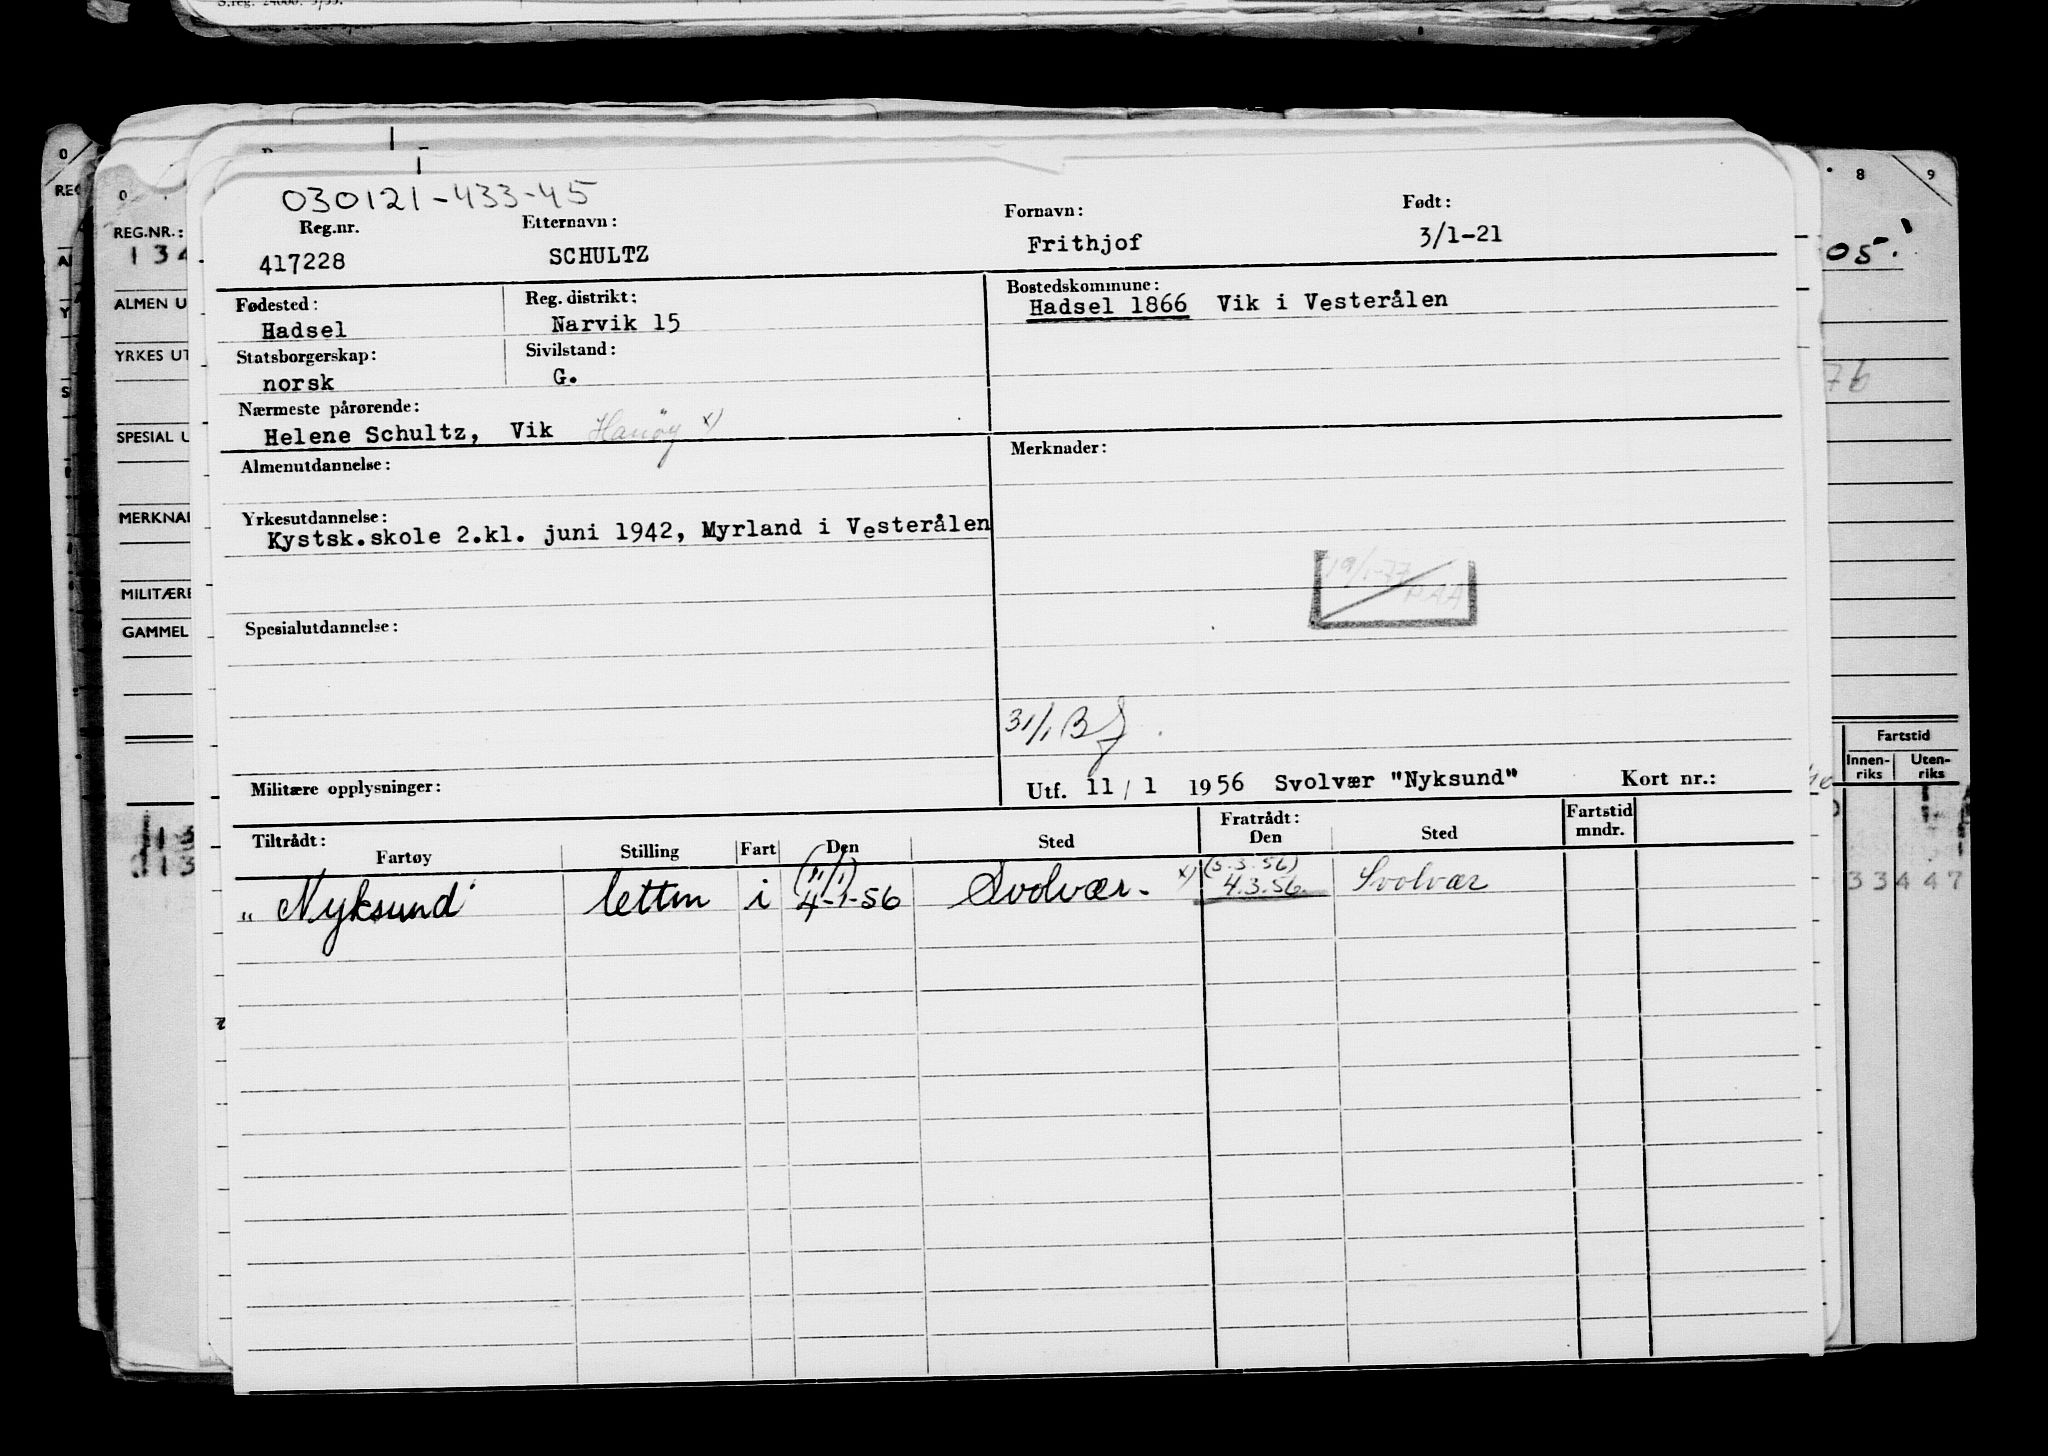 S.reg. 24000. 3/55.
030121-433-45
Reg.nr. Etternavn: Fornavn: Født:
417228 SCHULTZ Frithjof 3/1-21
Fødested: Reg. distrikt: Bostedskommune:
Hadsel Narvik 15 Hadsel 1866 Vik i Vesterålen
Statsborgerskap: Sivilstand:
norsk G.
Nærmeste pårørende:
Helene Schultz, Vik x)
Almenutdannelse: Merknader:
Yrkesutdannelse:
Kystsk.skole 2.kl. juni 1942, Myrland i Vesterålen
19/1-77
Spesialutdannelse:
31/1 B
Militære opplysninger: Utf. 11/1 1956 Svolvær "Nyksund" Kort nr.:
Tiltrådt: Fratrådt: Fartstid
Fartøy Stilling Fart Den Sted Den Sted mndr.
(11/1) x) (5.3.56)
"Nyksund" lettm i 4-1-56 Svolvær. 4.3.56. Svolvær
0
REG.NR.:
134
ALMEN U
YRKES UT
SPESIAL U
MERKNA
MILITÆRE
GAMMEL
8 9
05.
76
Fartstid
Innen-riks Uten-riks
33447